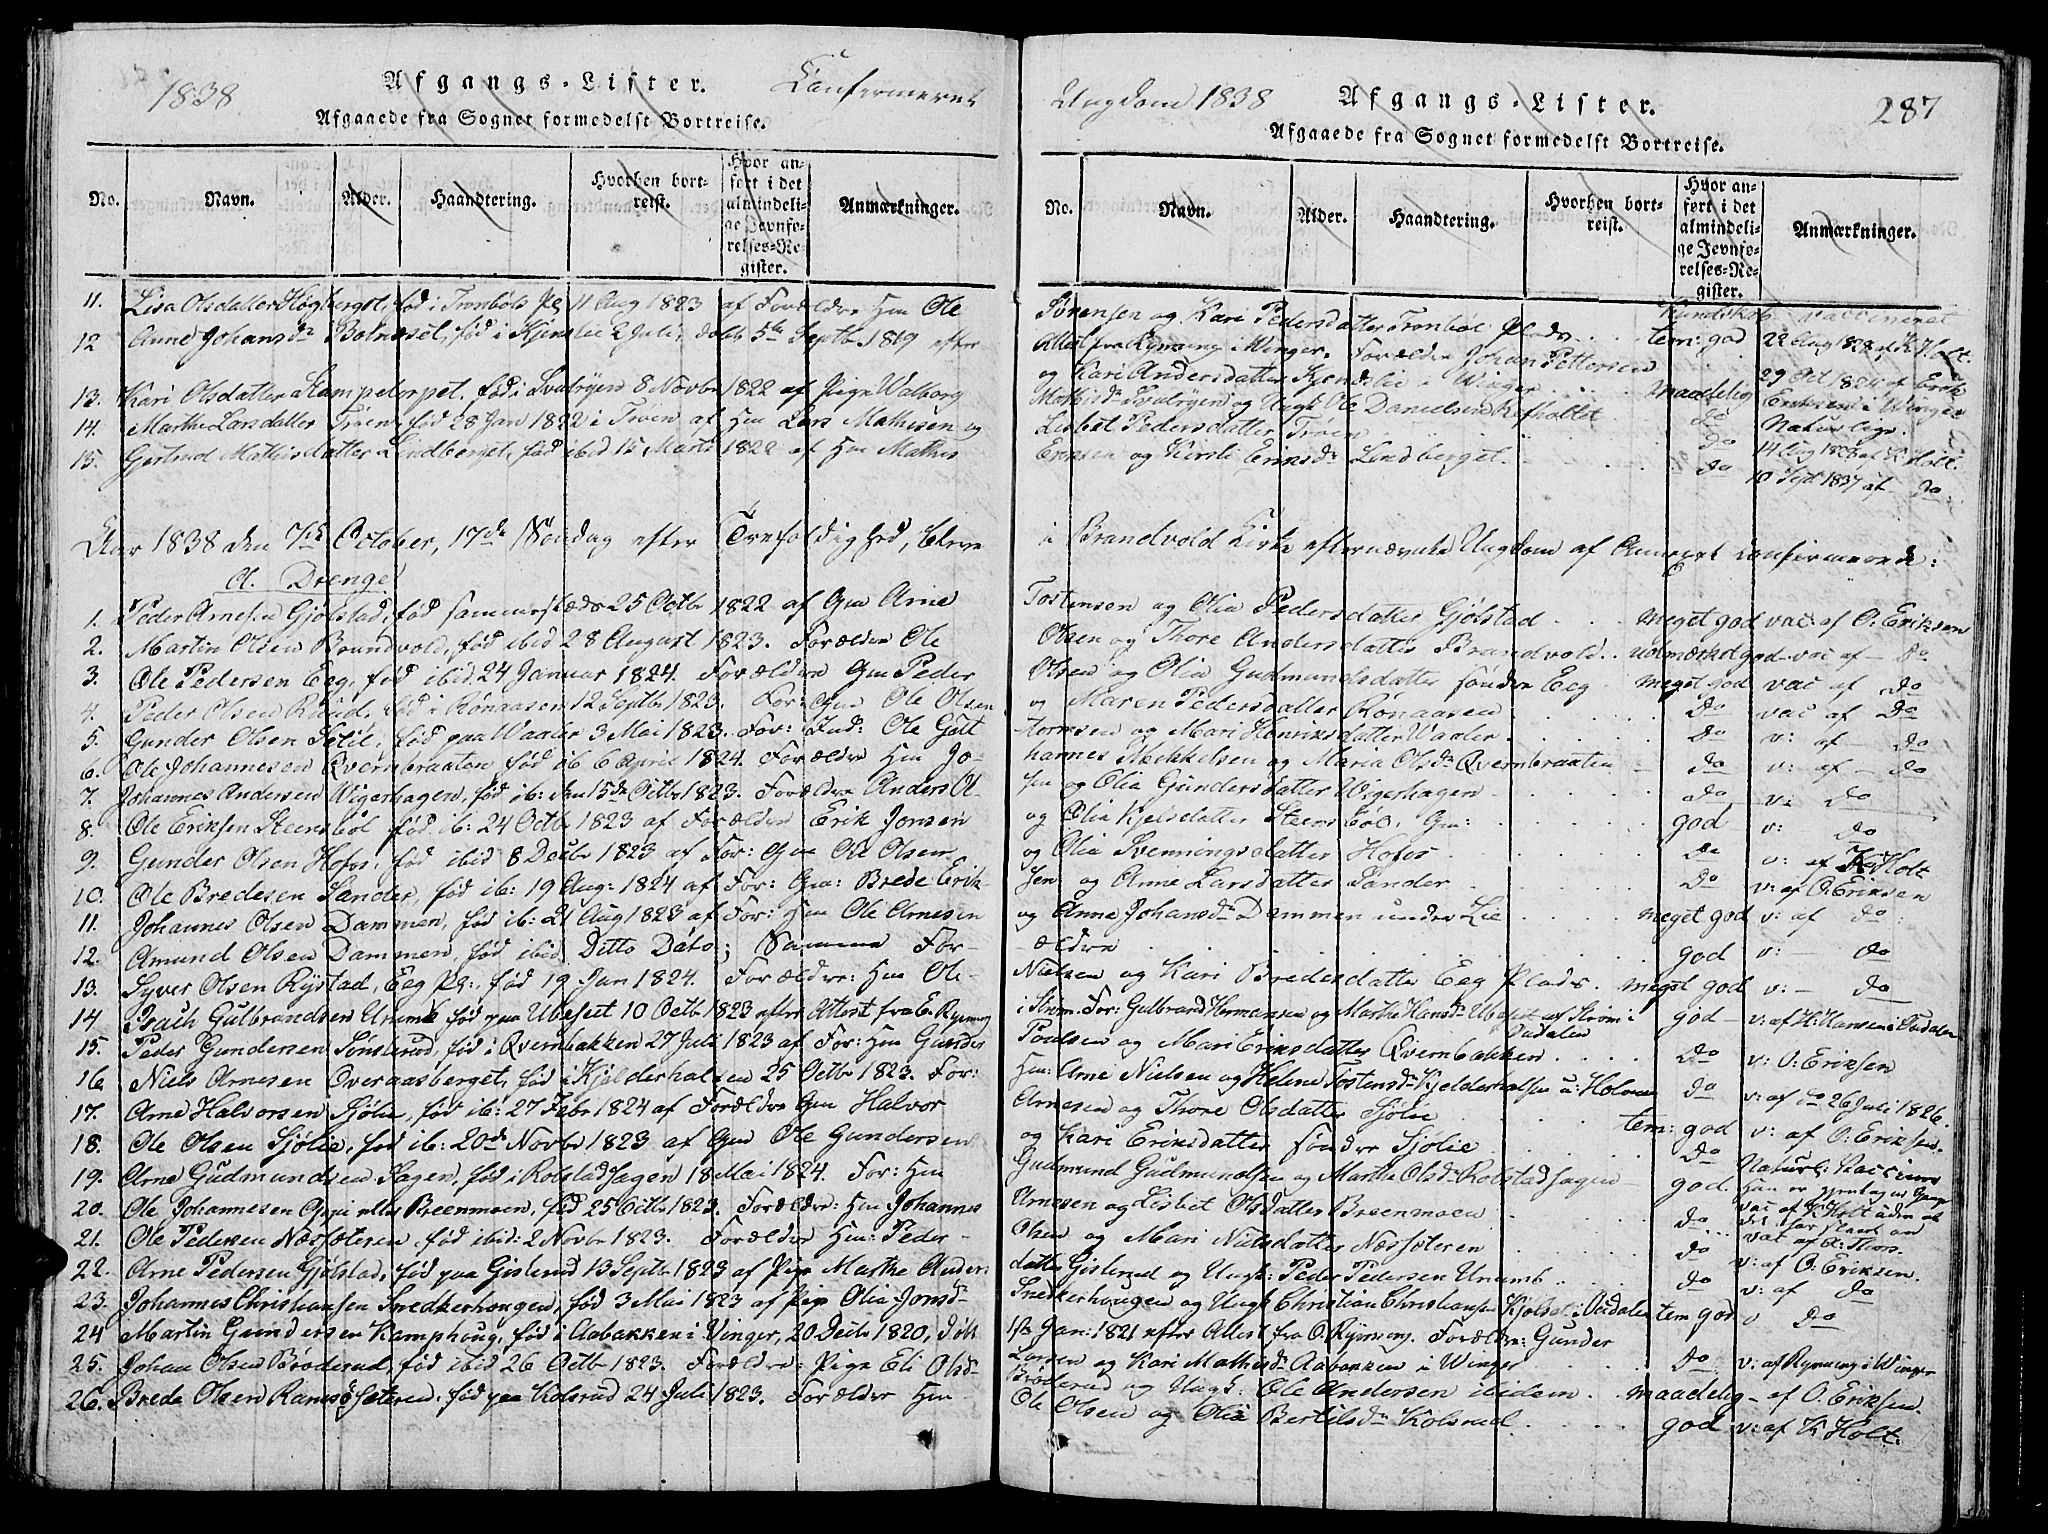 1838
Afgangs-Lister.
Confermeret
Afgaaede fra Sognet formedelst Bortreise.
No.
Navn.
Alder.
Haandtering.
Hvorhen bort-
reist.
Hvor an-
ført i det
almindeli-
ge Jevnfø-
relses-Re-
gister.
Anmærkninger.
11. Lisa Olsdatter Høgberget, fød i Tronbøls Pl 11 Aug 1823 af Forældre Hm Ole
12 Anne Johansdr Botneset, fød i Kjendlie 2 Juli, døbt 5te Septbr 1819 efter
13. Kari Olsdatter Stampetorpet, fød i Svalryen 8 Novbr 1822 af Pige Walborg
14. Marthe Larsdatter Tjren, fød 28 Jan 1822 i Troen af Hm Lars Mathisen og
15. Gertrud Mathisdatter Lindberget, fød ibid 15 Marts 1822 af Hm Mathis
Aar 1838 den 7de October, 17de Søndag efter Trefoldighed, bleve
A. Drenge
1. Peder Arnesen Gjølstad, fød sammestæds 25 Octbr 1822 af Gm Arne
2. Martin Olsen Brundvold, fød ibid 28 August 1823. Forældre Ole
3. Ole Pedersen Eeg, fød ibid 24 Januar 1824. Forældre Gm Peder
4. Peder Olsen Ruud, fød i Rønaasen 12 Septbr 1823. For: Gm Ole Olsen
5. Gunder Olsen fød paa Waaler 3 Mai 1823. For: Ind: Ole Gut
6. Ole Johannesen Qvernbraaten fød ib 6 April 1824. Forældre Hm Jo-
7. Johannes Andersen Wigerhagen, fød ib: den 15de Octbr 1823. Forældre Anders Ol
8. Ole Eriksen Steensbøl fød ib: 24 Octbr 1823 af Forældre Erik Jonsen
9. Gunder Olsen Hofos, fød ibid 8 Decbr 1823 af For: Gm Ole Olsen
10. Ole Bredesen Sander, fød ib: 19 Aug: 1824 af For: Gm: Brede Erik-
11. Johannes Olsen Dammen, fød ib: 21 Aug 1823 af For: Hm Ole Arnesen
12. Amund Olsen Dammen, fød ibid Ditto Dato; Samme For-
13. Syver Olsen Rystad, Eeg Pl:, fød 19 Jan 1824. Forældre: Hm Ole
14 Gulbrandsen Unumb fød paa Ubeset 10 Octbr 1823 efter Attest fra E. Rynning
15. Peder Gundersen Sønsterud, fød i Qvernbakken 27 Juli 1823 af For: Hm Gunder
16. Niels Arnesen Overaasberget, fød i Kjelderhalsen 25 Octbr 1823. For:
17. Arne Halvorsen Sjølie, fød ib: 27 Febr 1824 af Forældre Gm Halvor
18. Ole Olsen Sjølie, fød ib: 20de Novbr 1823 af Gm Ole Gundersen
19. Arne Gudmundsen Sagen, fød i Rolstadsagen 18 Mai 1824. For: Hm
20. Ole Johannesen eller Breenmoen, fød 25 Octbr 1823. Forældre: Hm Johannes
21. Ole Pedersen Næssæteren, fød ibid: 2 Novbr 1823. Forældre Hm: Peder
22. Arne Pedersen Gjølstad, fød paa Gislerud 13 Septbr 1823 af Pige Marthe Anders
23. Johannes Christiansen Snedkerhougen, fød 3 Mai 1823 af Pige Olia Jonsdr
24 Martin Gundersen Kamphoug, fød i Aabakken i Vinger, 20 Decbr 1820, døbt
25. Johan Olsen Brøderud, fød ibid 26 Octbr 1823. Forældre: Pige Eli Olsdr
26. Brede Olsen Ramsøsæteren, fød paa Kolsrud 24 Juli 1823. Forældre Hm
Ungdom 1838
Afgangs-Lister.
287
Afgaaede fra Sognet formedelst Bortreise.
No.
Navn.
Alder.
Haandtering.
Hvorhen bort-
reist.
Hvor an-
ført i det
almindeli-
ge Jevnfø-
relses-Re-
gister.
Anmærkninger.
Kundskab vaccineret
Sørensen og Kari Pedersdatter Tronbøl Plads . . tem: god 22 Aug 1828 af K Holt.
Attest fra Rynning i Winger. Forældre Johan Pettersen
og Kari Andersdatter Kjendlie i Winger . . . maadelig 29 Oct 1824 af Erik Eriksen i Winger
Mathisdr Svalryen og Ungk Ole Danielsen Refholtet do Naturlige.
Lisbet Pedersdatter Troen . . . do 14 Aug 1828 af K Holt.
Eriksen og Kirsti Eriksdr Lindberget . . . do 10 Sept 1837 af do
i Brandvold Kirke efternævnte Ungdom af Annext confirmerede:
Tostensen og Olia Pedersdatter Gjølstad . . . meget god vac: af O: Eriksen
Olsen og Thore Andersdatter Brandvold . . udmærket god vac af - Do
Olsen og Olia Gudmundsdatter søndre Eeg . meget god vac af Do
og Maren Pedersdatter Rønaasen . . . do vac af Do
tormsen og Mari Henriksdatter Waaler . . . do v: af - Do
hannes Mikkelsen og Maria Olsdr Qvernbraaten - do v: af - do
sen og Olia Gundersdatter Wigerhagen . . . do v: Do
og Olia Kjelsdatter Steensbøl. Gm: . . . god v: do
og Olia Svenningsdatter Hofos . . . do v: af K Holt
sen og Anne Larsdatter Sander . . . do v: af O: Eriksen
og Anne Johansdr Dammen under Lie . . . meget god v: af do
ældre . . . god v: - do
Nielsen og Kari Bredesdatter Eeg Plads . meget god v: - do
i Strøm. For: Gulbrand Hermansen og Marthe Hansdr Ubeset af Strøm i Oudalen god - v: af H: Hansen i Oudalen
Poulsen og Mari Eriksdatter Qvernbakken . . . do v: O: Eriksen
Hm: Arne Nielsen og Helene Tostensdr Kjelderhalsen u: Holmen do v: af do 26 Juli 1826.
Arnesen og Thore Olsdatter Sjølie . . . tem: god v: af O: Eriksen.
og Kari Eriksdatter søndre Sjølie . . . do Naturl:
Gudmund Gudmundsen og Marthe Olsdr Rolstadsagen . god.
Arnesen og Lisbet Olsdatter Breenmoen . . . do
Olsen og Mari Nielsdatter Næssæteren . . . do
datter Gislerud og Ungk: Peder Pedersen Unumb . . . do v: af O: Eriksen.
Snedkerhougen og Ungk Christian Christiansen Kjølset i Oudalen tem god v: af do
1ste Jan: 1821 efter Attest fra O. Rynning. Forældre: Gunder v Do
Larsen og Kari Mathisdr Aabakken i Winger . . do v: af Rynning i Winger
Brøderud og Ungk: Ole Andersen ibidem . . maadelig - af O. Eriksen.
Ole Olsen og Olia Bertilsdr Kolsrud . . . god v: af K Holt.